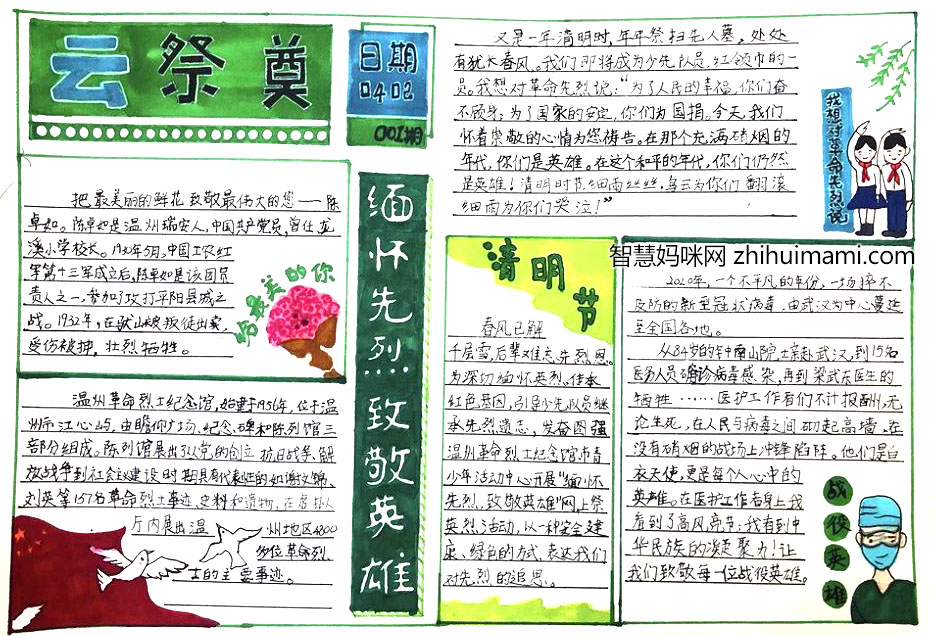 云祭奠
日期
0402
001期
把最美丽的鲜花致敬最伟大的您——陈
卓如。陈卓如是温州瑞安人,中国共产党员,曾任龙
溪小学校长。1930年5月,中国工农红
军第十三军成立后,陈卓如是该团负
责人之一,参加了攻打平阳县城之
战。1932年,在驮山被叛徒出卖,
受伤被捕,壮烈牺牲。
最美的你
温州革命烈士纪念馆,始建于1956年,位于温
州市江心屿,由瞻仰广场、纪念碑和陈列馆三
部分组成。陈列馆展出了从党的创立、抗日战争、解
放战争到社会主义建设时期具有代表性的如谢文锦、
刘英等157名革命烈士事迹、史料和遗物,在
厅内展出温 州地区4800
多位革命烈
士的主要事迹。
缅怀先烈…致敬英雄
又是一年清明时,年年祭扫先人墓,处处
有犹长春风。我们即将成为少先队员,红领巾的一
员。我想对革命先烈说:“为了人民的幸福,你们奋
不顾身;为了国家的安定,你们为国捐。今天,我们
怀着崇敬的心情为您祷告。在那个充满硝烟的
年代,你们是英雄。在这个和平的年代,你们仍然
是英雄!清明时节细雨丝丝,乌云为你们翻滚
细雨为你们哭泣!”
我想对革命先烈说
智慧妈咪网 zhihuimami.com
清明节
春风已解
千层雪,后辈难忘先烈恩。
为深切缅怀英烈,传承
红色基因,引导少先队员继
承先烈遗志,发奋图强
温州革命烈士纪念馆市青
少年活动中心开展“缅怀
先烈,致敬英雄”网上祭
英烈活动,以一种安全健
康、绿色的方式,表达我们
对先烈的追思。
2020年,一个不平凡的年份,一场猝不
及防的新型冠状病毒,由武汉为中心蔓延
至全国各地。
从84岁的钟南山院士亲赴武汉,到15名
医务人员确诊病毒感染,再到梁武东医生的
牺牲……医护工作者们不计报酬,无
论生死,在人民与病毒之间砌起高墙,在
没有硝烟的战场上冲锋陷阵。他们是白
衣天使,更是每个人心中的
英雄。在医护工作者身上我
看到了高风亮节;我看到中
华民族的凝聚力!让
我们致敬每一位战役英雄。
战役英雄